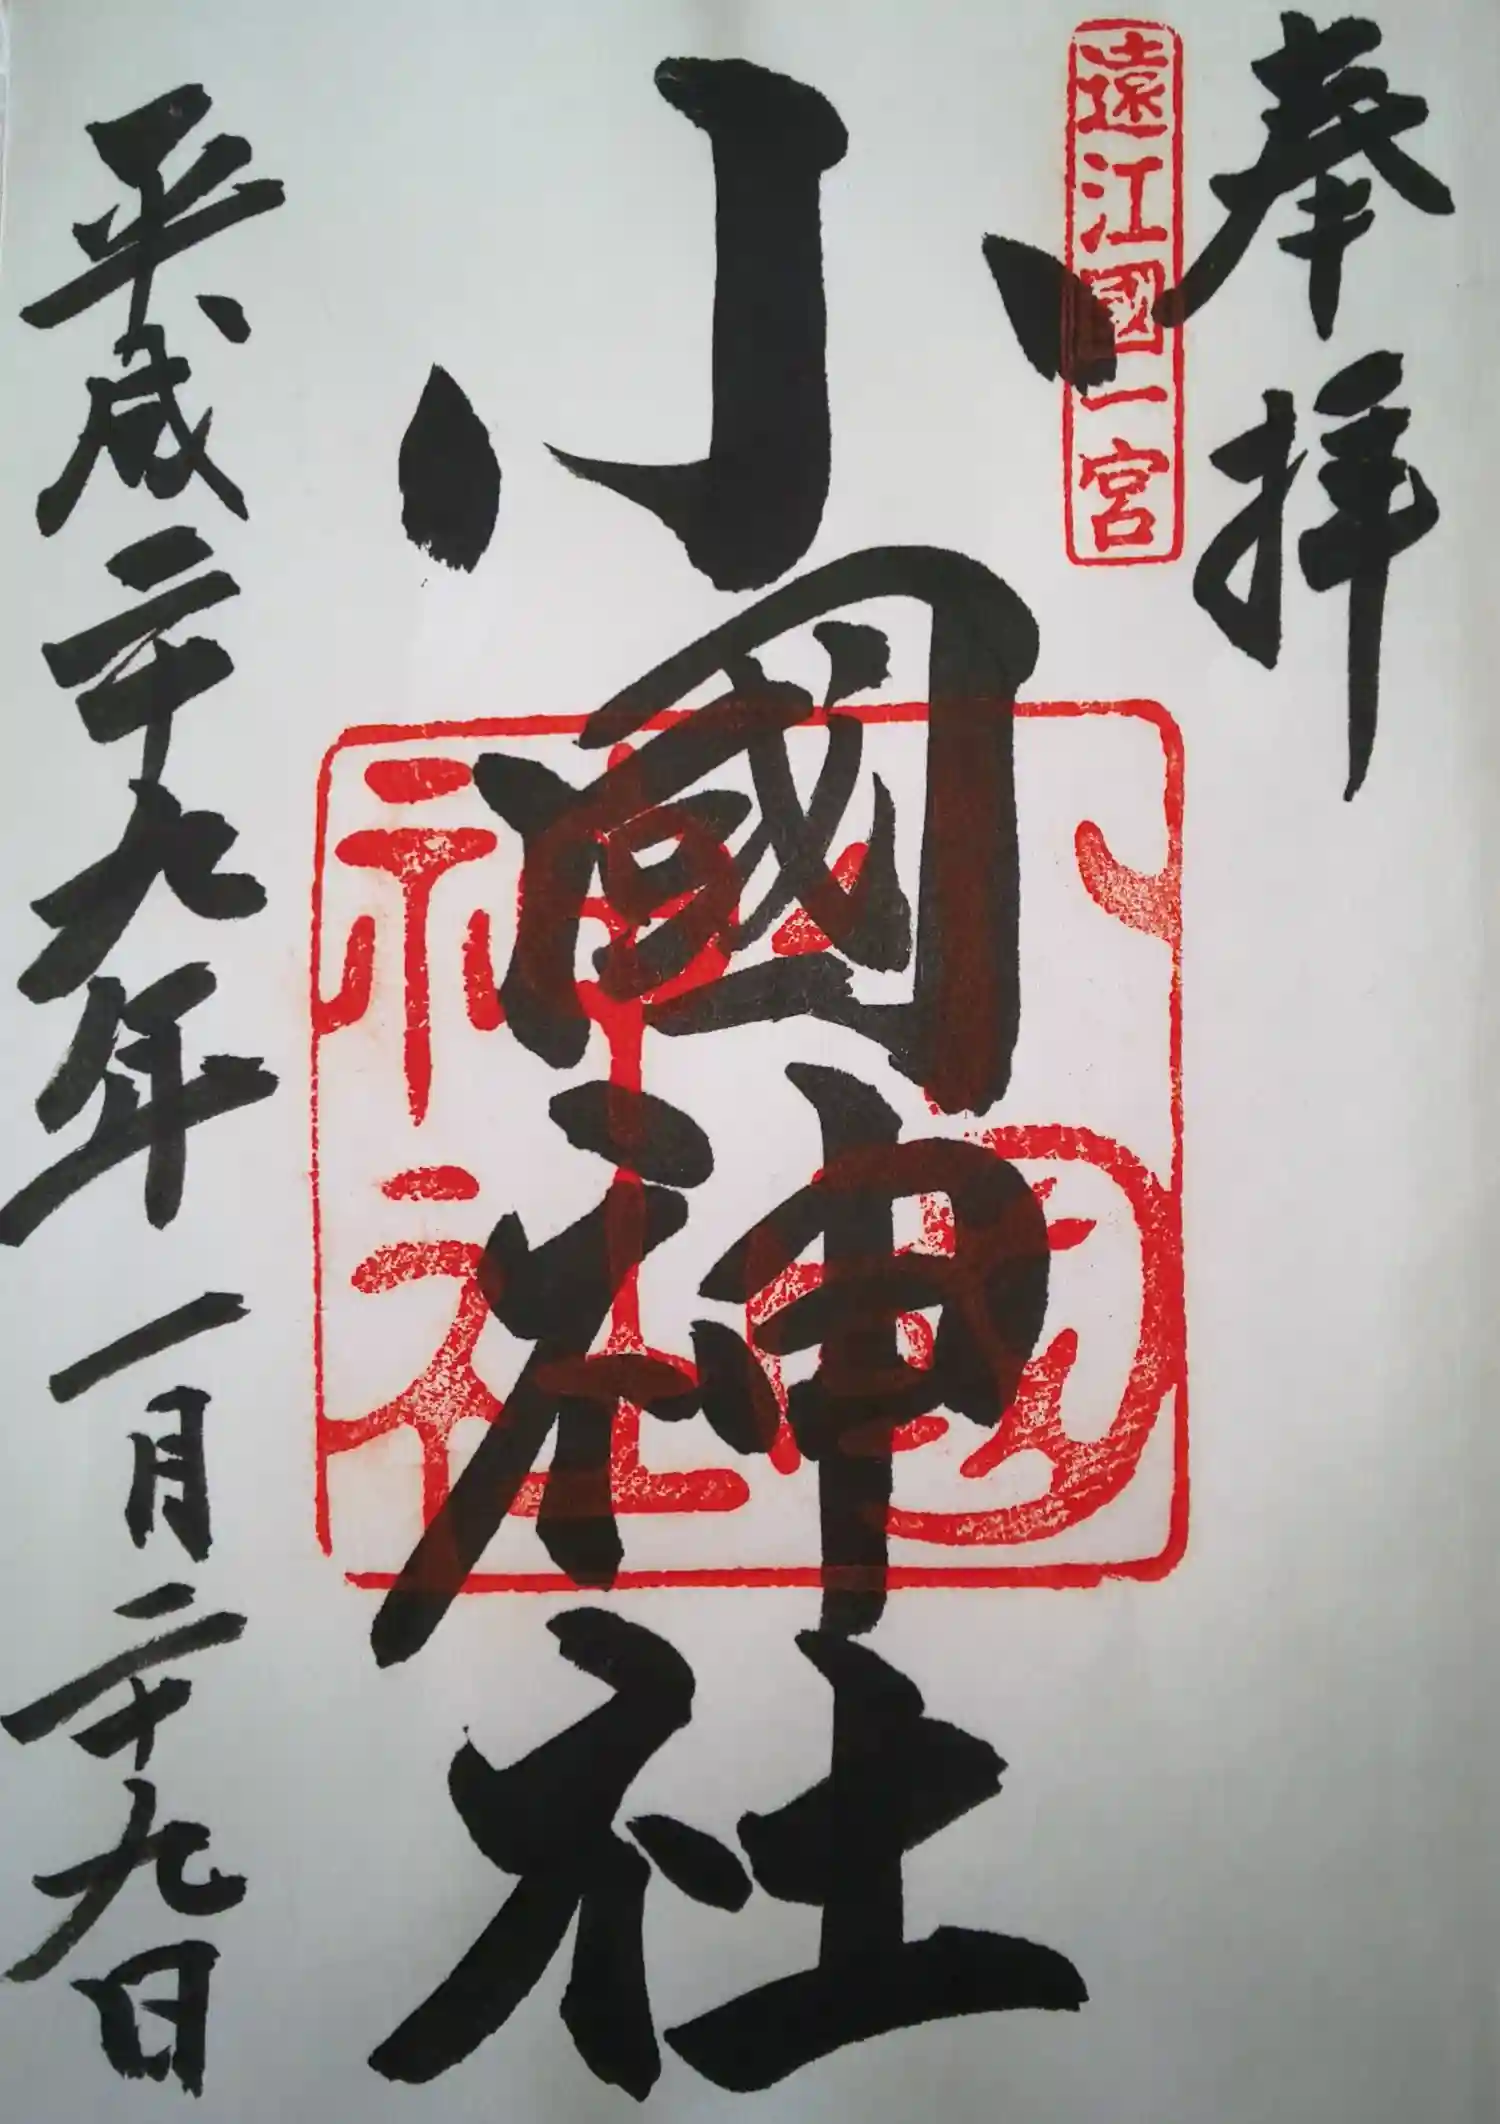 奉拝
遠江國一宮
小國神社
小國
神社
平成二十九年一月二十九日